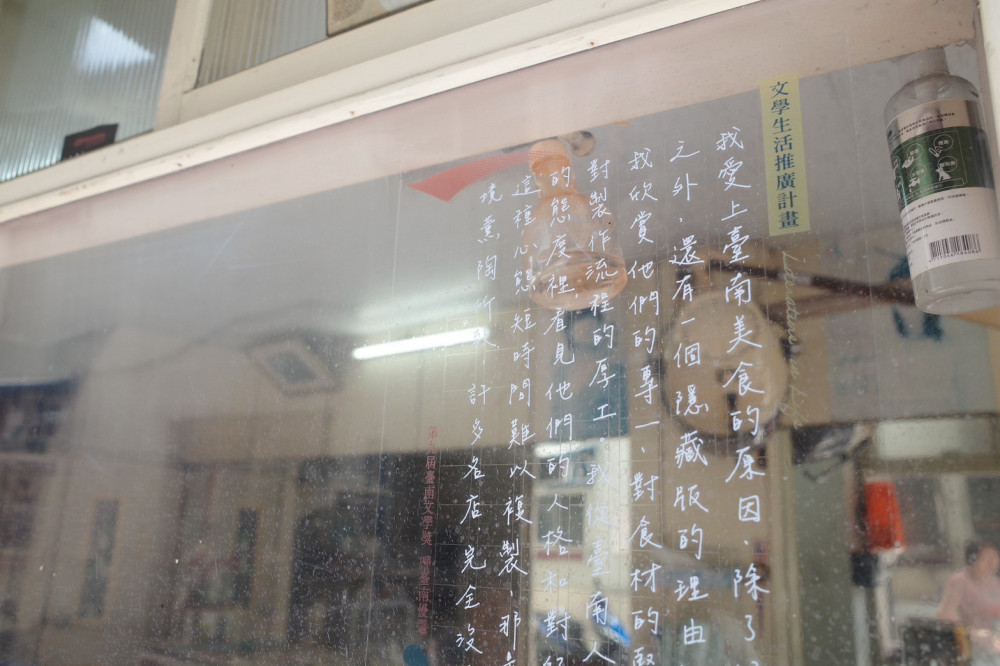 文學生活推廣計畫
我愛上臺南美食的原因、除了
之外，還有一個隱藏版的理由
我欣賞他們的專一、對食材的堅
對製作流程的厚工。我從臺南人
的態度裡，看見他們的人格和對
這種心態短時間難以複製、那
境薰陶所致 許多名店完全沒
屆臺南文學獎